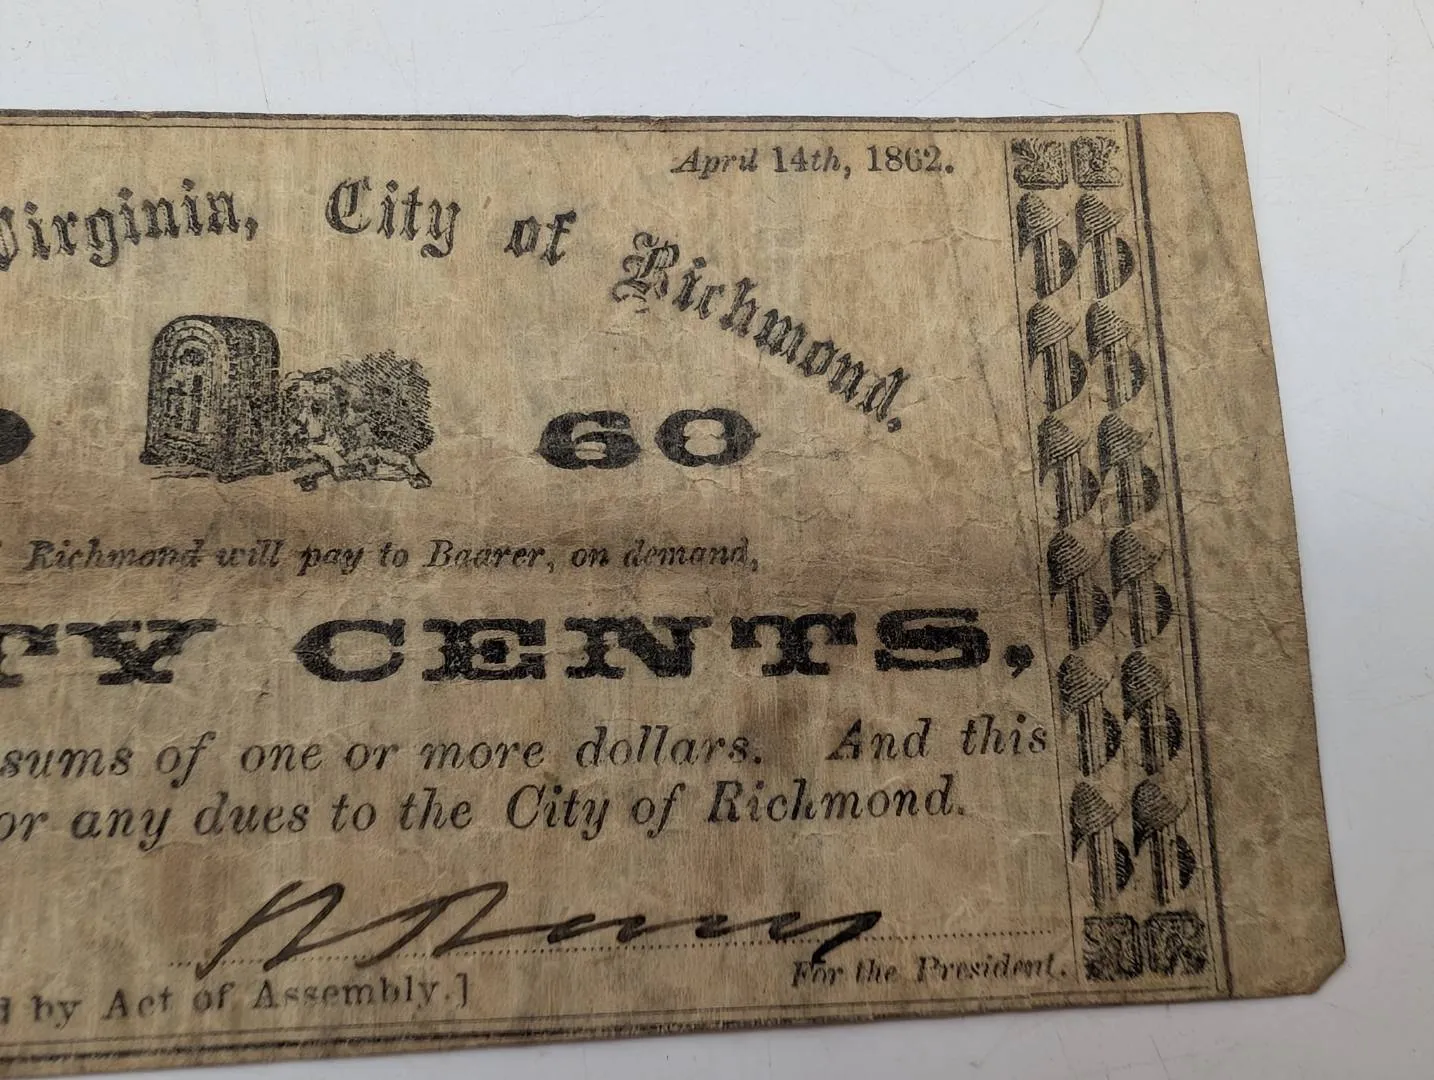 April 14th, 1862.
Virginia, City of Richmond.
60
Richmond will pay to Baarer, on demand,
TY CENTS,
sums of one or more dollars. And this
or any dues to the City of Richmond.
For the President.
d by Act of Assembly.]